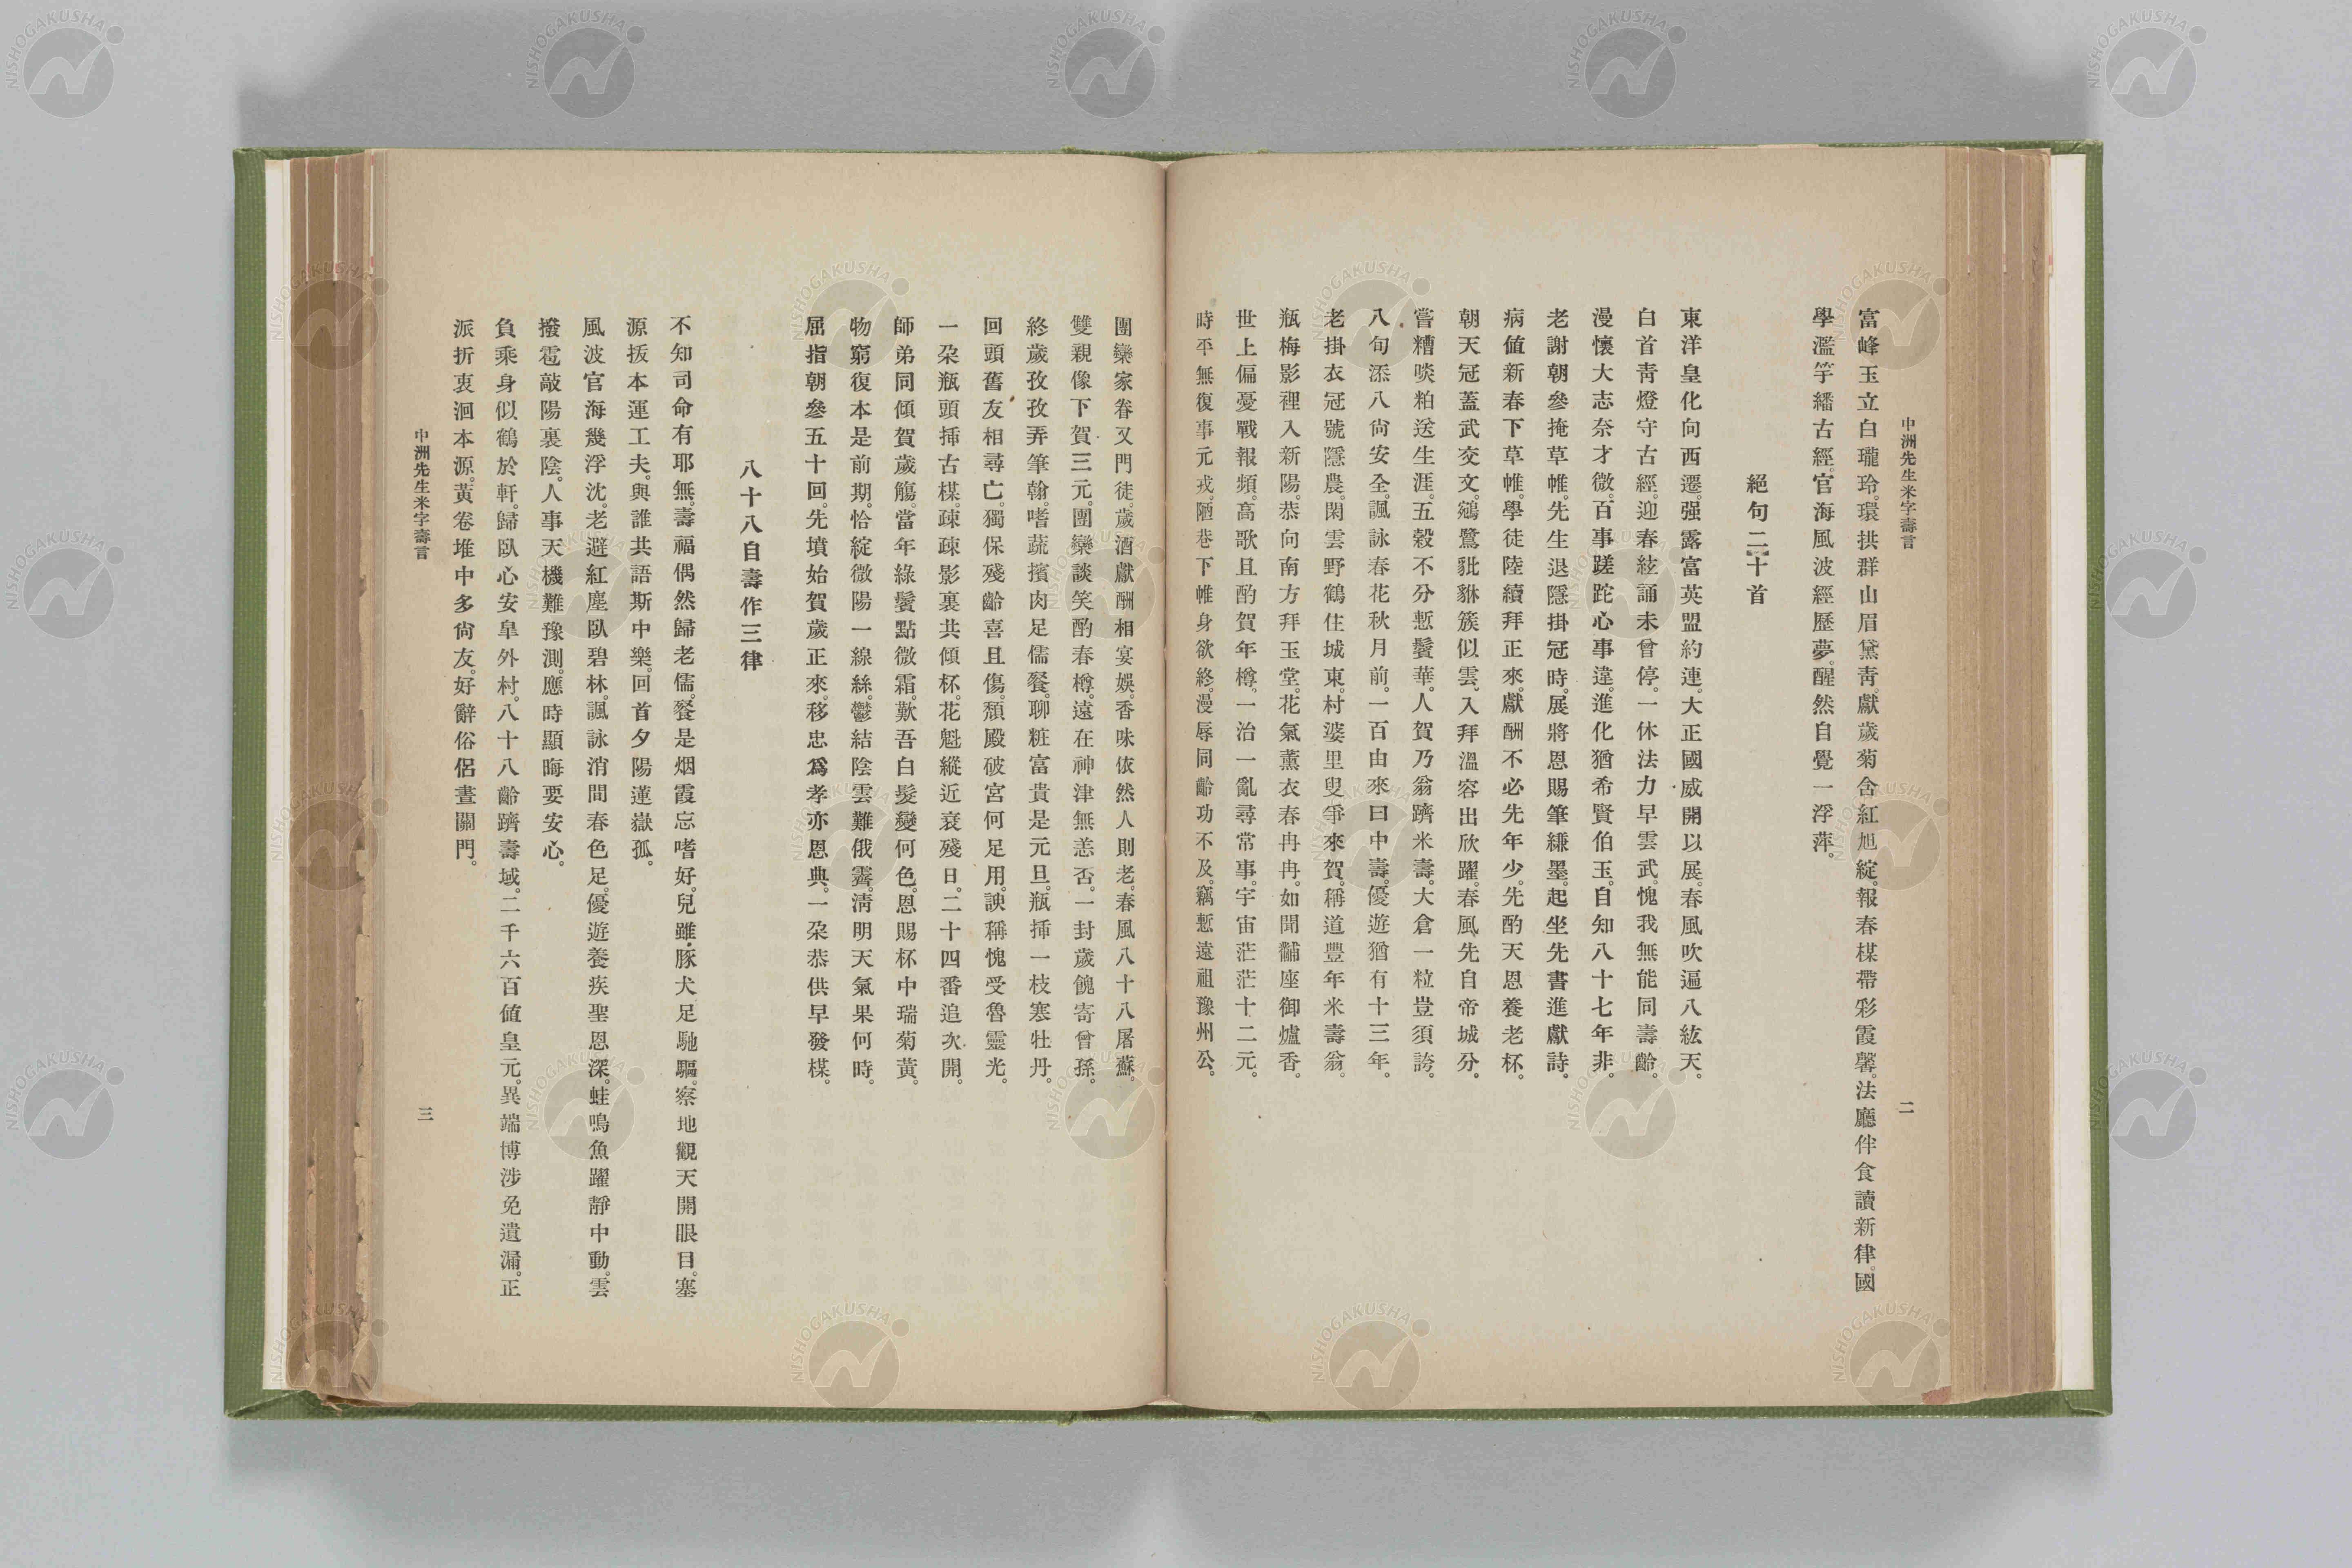 中洲先生米字壽言
二
富峰玉立白瓏玲。環拱群山眉黛靑。獻歲菊含紅旭綻。報春楳帶彩霞馨。法廳伴食讀新律。國
學濫竽繙古經。官海風波經歷夢。醒然自覺一浮萍。
絕句二十首
東洋皇化向西遷。强露富英盟約連。大正國威開以展。春風吹遍八紘天。
白首靑燈守古經。迎春絃誦未曾停。一休法力早雲武。愧我無能同壽齡。
漫懷大志奈才微。百事蹉跎心事違。進化猶希賢伯玉。自知八十七年非。
老謝朝參掩草帷。先生退隱掛冠時。展將恩賜筆縑墨。起坐先書進獻詩。
病値新春下草帷。學徒陸續拜正來。獻酬不必先年少。先酌天恩養老杯。
朝天冠蓋武交文。鵷鷺豼貅簇似雲。入拜溫容出欣躍。春風先自帝城分。
嘗糟啖粕送生涯。五穀不分慙鬢華。人賀乃翁躋米壽。大倉一粒豈須誇。
八旬添八尙安全。諷詠春花秋月前。一百由來曰中壽。優遊猶有十三年。
老掛衣冠號隱農。閑雲野鶴住城東。村婆里叟爭來賀。稱道豐年米壽翁。
瓶梅影裡入新陽。恭向南方拜玉堂。花氣薰衣春冉冉。如聞黼座御爐香。
世上偏憂戰報頻。高歌且酌賀年樽。一治一亂尋常事。宇宙茫茫十二元。
時平無復事元戎。陋巷下帷身欲終。漫辱同齡功不及。竊慙遠祖豫州公。
團欒家眷又門徒。歲酒獻酬相宴娛。香味依然人則老。春風八十八屠蘇。
雙親像下賀三元。團欒談笑酌春樽。遠在神津無恙否。一封歲餽寄曾孫。
終歲孜孜弄筆翰。嗜蔬擯肉足儒餐。聊粧富貴是元旦。瓶揷一枝寒牡丹。
回頭舊友相尋亡。獨保殘齡喜且傷。頹殿破宮何足用。諛稱愧受魯靈光。
一朶瓶頭揷古楳。疎疎影裏共傾杯。花魁縱近衰殘日。二十四番追次開。
師弟同傾賀歲觴。當年綠鬢點微霜。歎吾白髮變何色。恩賜杯中瑞菊黃。
物窮復本是前期。恰綻微陽一線絲。鬱結陰雲難俄霽。淸明天氣果何時。
屈指朝參五十回。先墳始賀歲正來。移忠爲孝亦恩典。一朶恭供早發楳。
八十八自壽作三律
不知司命有耶無。壽福偶然歸老儒。餐是烟霞忘嗜好。兒雖豚犬足馳驅。察地觀天開眼目。塞
源拔本運工夫。與誰共語斯中樂。回首夕陽蓮嶽孤。
風波官海幾浮沈。老避紅塵臥碧林。諷詠消間春色足。優遊養疾聖恩深。蛙鳴魚躍靜中動。雲
撥雹敲陽裏陰。人事天機難豫測。應時顯晦要安心。
負乘身似鶴於軒。歸臥心安阜外村。八十八齡躋壽域。二千六百値皇元。異端博涉免遺漏。正
派折衷洄本源。黃卷堆中多尙友。好辭俗侶晝關門。
中洲先生米字壽言
三
NISHOGAKUSHA